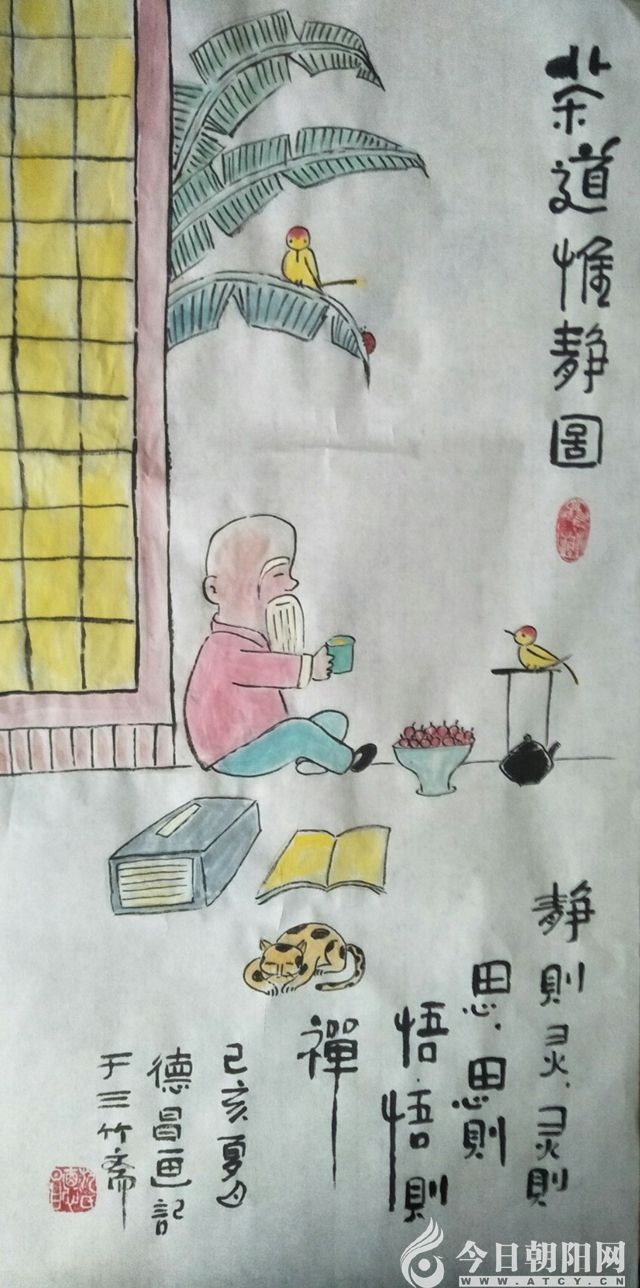 茶道惟静圖
静則灵、灵則
思、思則
悟、悟則
禪
己亥夏月
德昌画記
于三竹斋
今日朝阳网
WWW.ATCY.CN